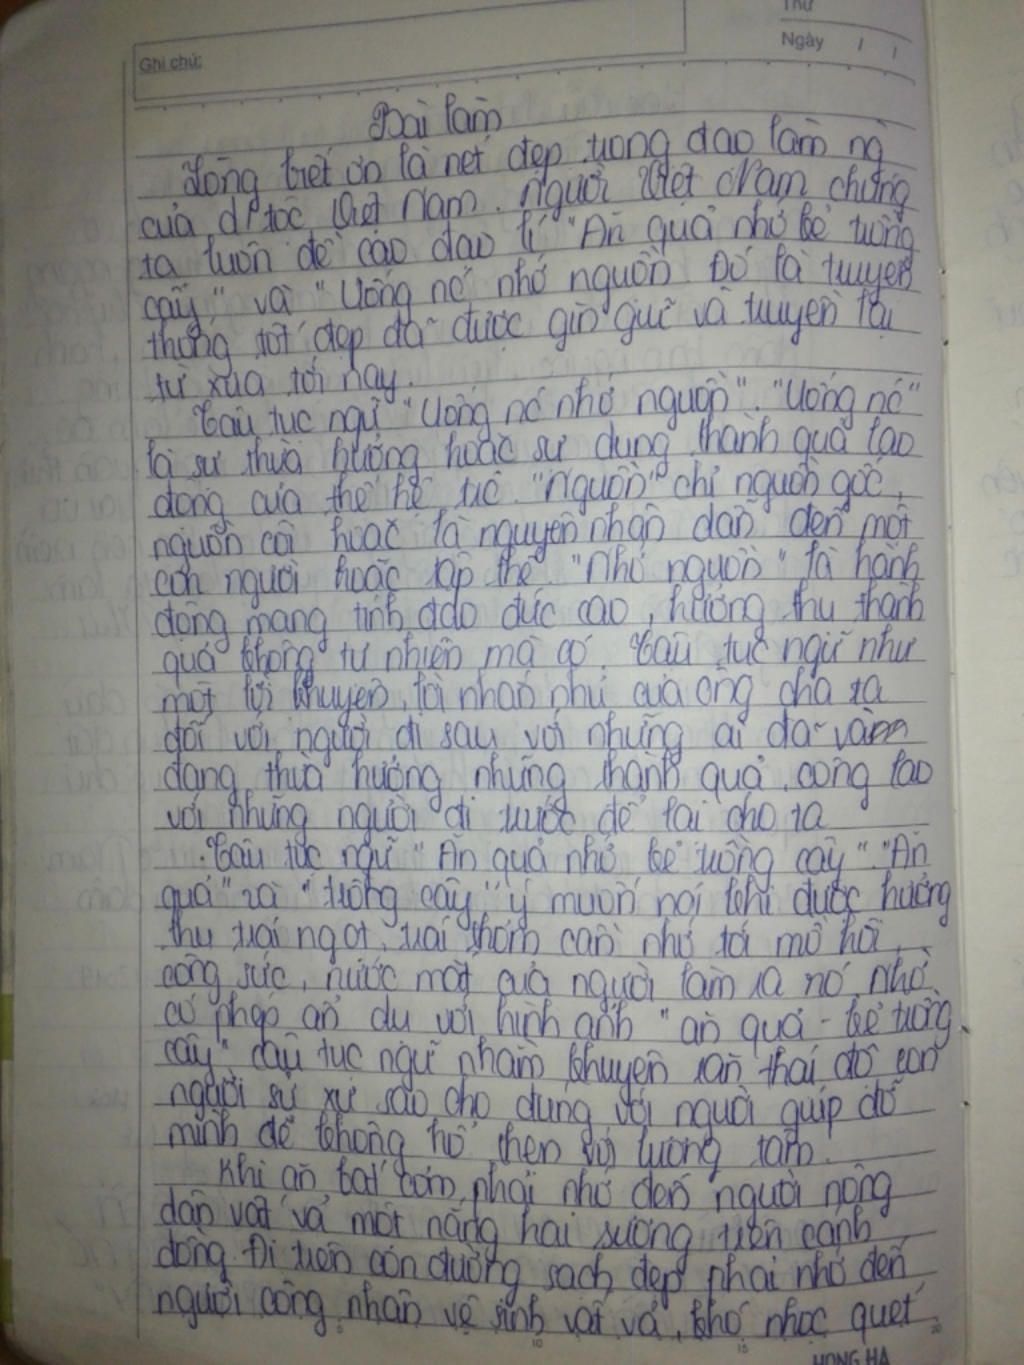 Thứ
Ngày / /
Ghi chú:
Bài làm
Lòng biết ơn là nét đẹp trong đạo làm ng
của dt tộc Việt Nam. Người Việt Nam chúng
ta luôn đề cao đạo lí "Ăn quả nhớ kẻ trồng
cây" và "Uống nc nhớ nguồn. Đó là truyền
thống tốt đẹp đã được gìn giữ và truyền lại
từ xưa tới nay.
Câu tục ngữ "Uống nc nhớ nguồn". "Uống nc"
là sự thừa hưởng hoặc sự dụng thành quả lao
động của thế hệ trc. "Nguồn" chỉ nguồn gốc,
nguồn cội hoặc là nguyên nhân dẫn đến một
con người hoặc tập thể. "Nhớ nguồn" là hành
động mang tính đạo đức cao, hưởng thụ thành
quả không tự nhiên mà có. Câu tục ngữ như
một lời khuyên, lời nhắn nhủ của ông cha ta
đối với người đi sau với những ai đã và
đang thừa hưởng những thành quả, công lao
với những người đi trước để lại cho ta
Câu tục ngữ "Ăn quả nhớ kẻ trồng cây". "Ăn
quả" và "trồng cây" ý muốn nói khi được hưởng
thụ trái ngọt, trái thơm cần nhớ tới mồ hôi,
công sức, nước mắt của người làm ra nó. Nhờ
có phép ẩn dụ với hình ảnh "ăn quả - kẻ trồng
cây" câu tục ngữ nhằm khuyên răn thái độ con
người sử xự sao cho đúng với người giúp đỡ
mình để không hổ thẹn với lương tâm.
Khi ăn bát cơm phải nhớ đến người nông
dân vất vả một nắng hai sương trên cánh
đồng. Đi trên con đường sạch đẹp phải nhớ đến
người công nhân vệ sinh vất vả, khó nhọc quét
10 15 20
HONG HA